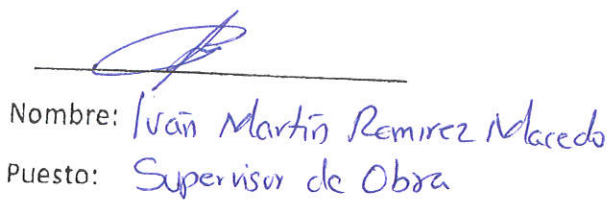 Nombre: Iván Martín Ramirez Macedo
Puesto: Supervisor de Obra